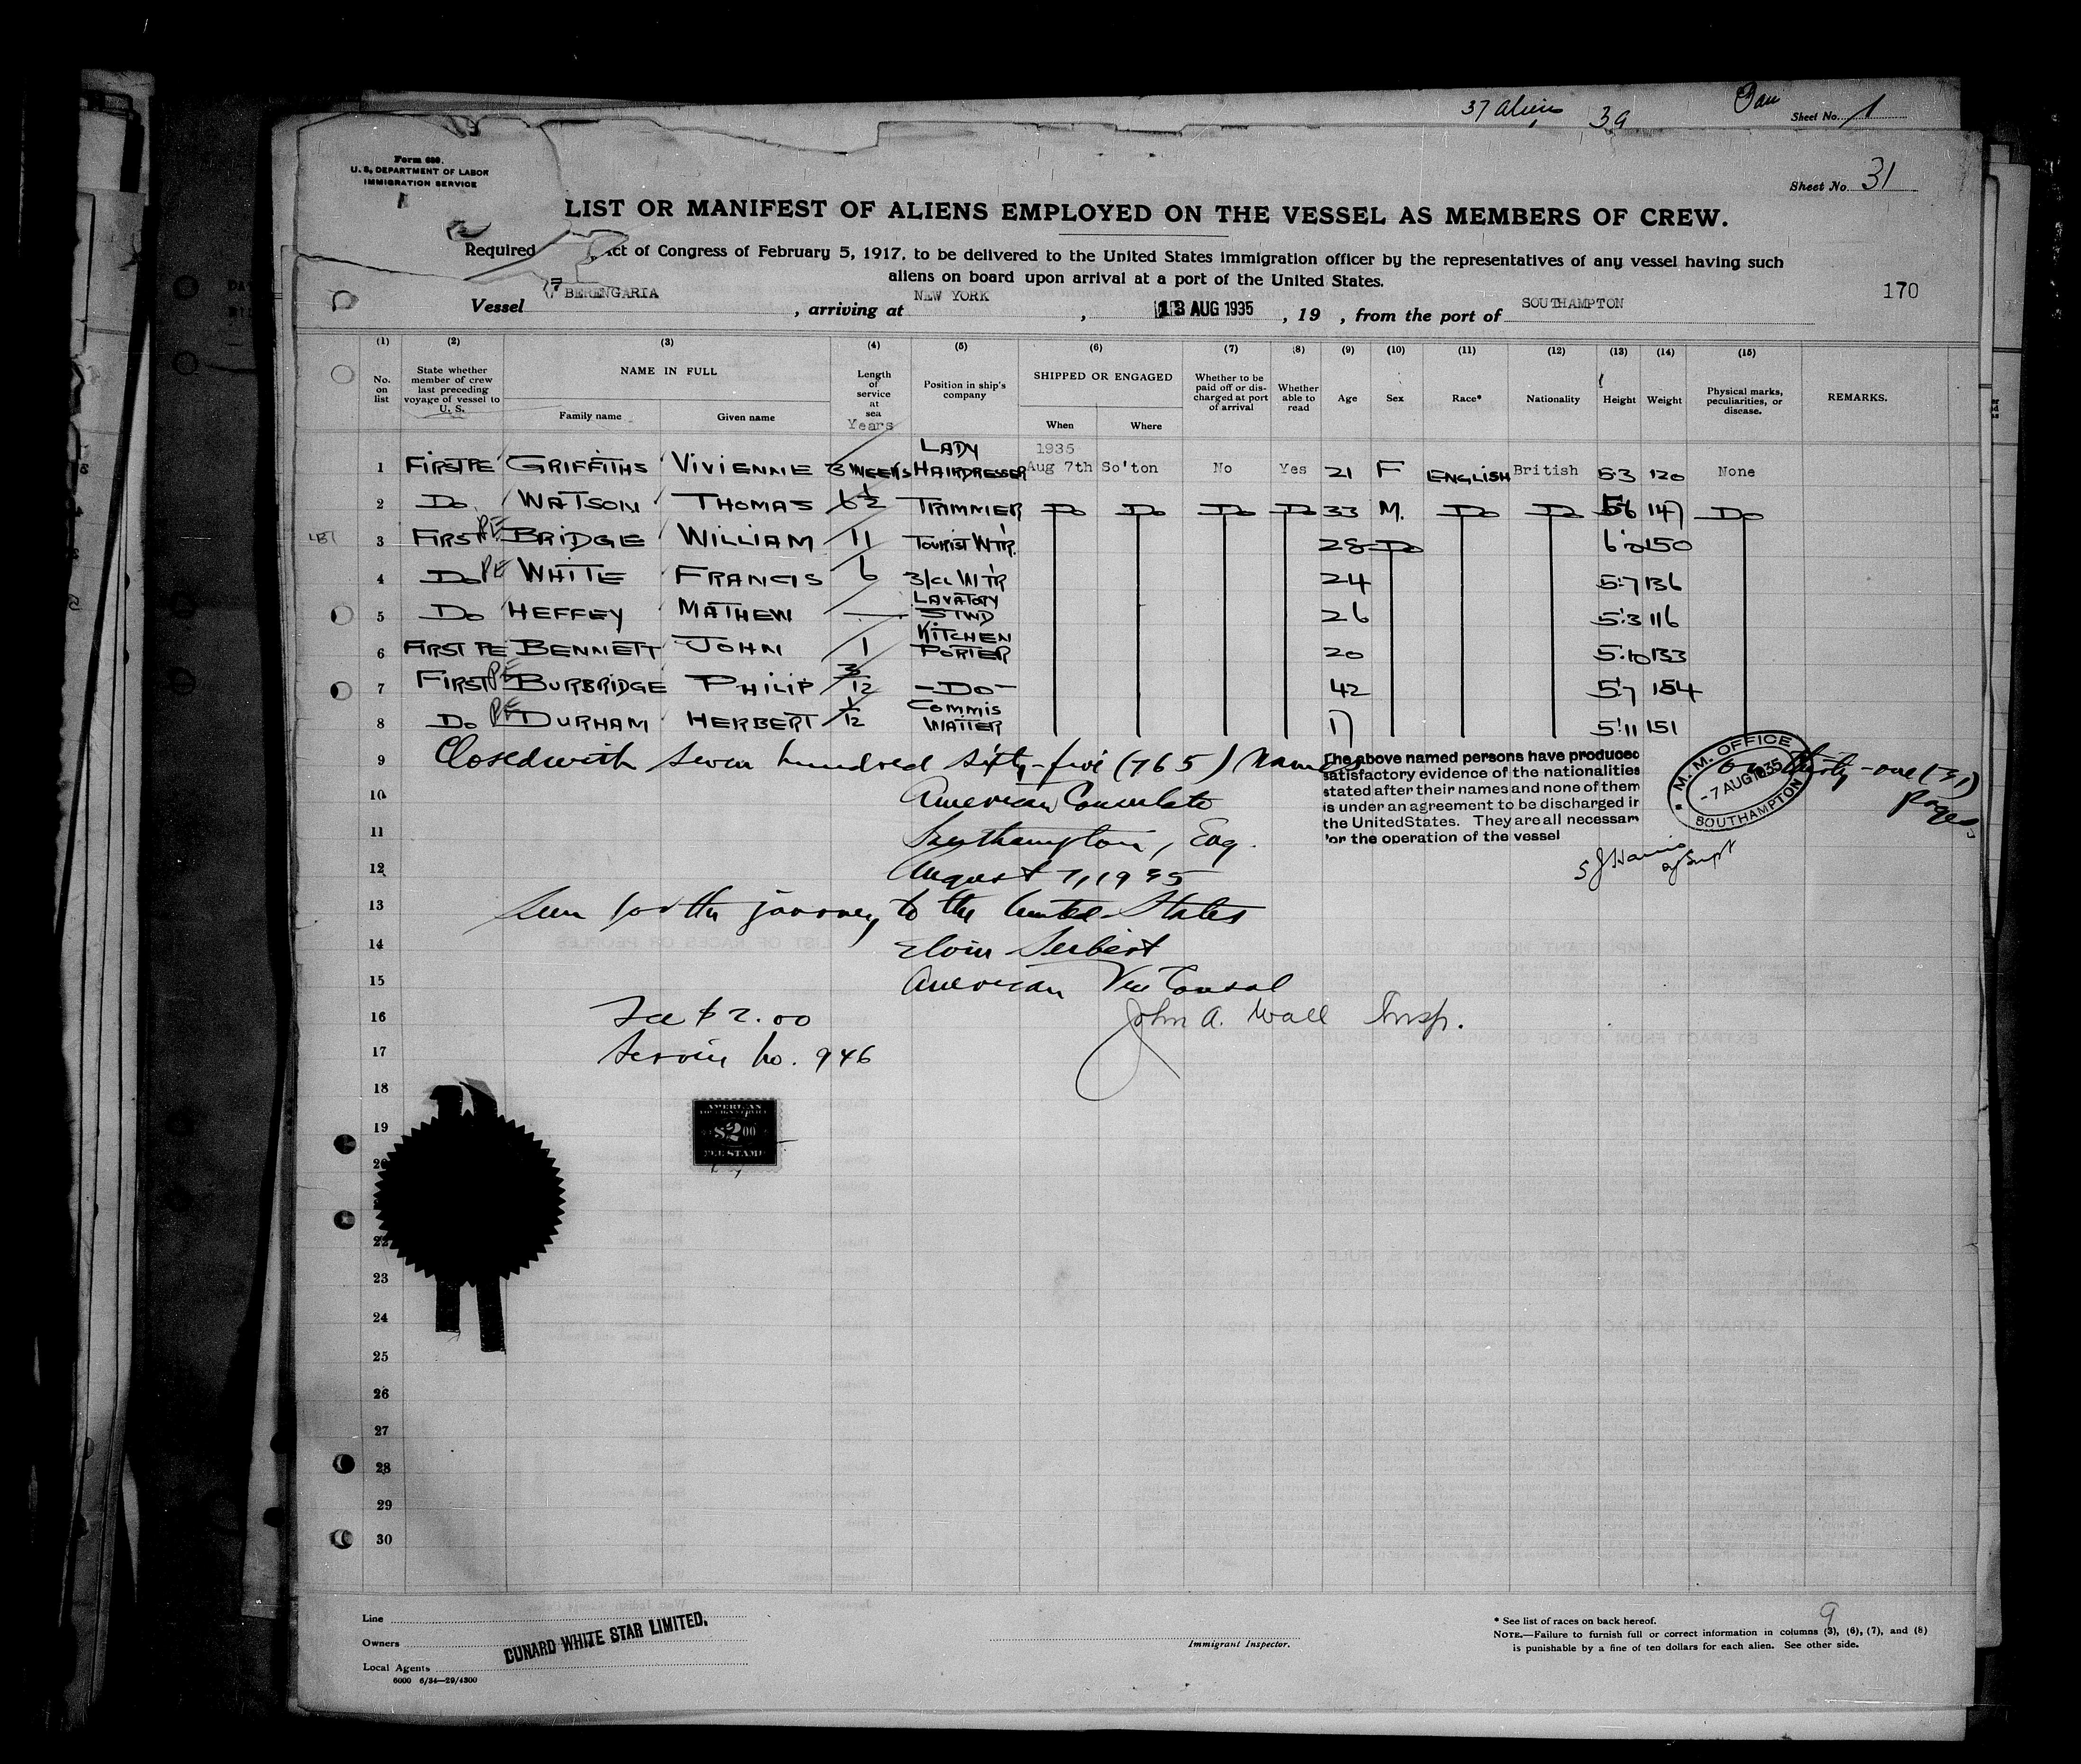 37 Alien 39
Sheet No. 1
Form 680.
U. S. DEPARTMENT OF LABOR
IMMIGRATION SERVICE
Sheet No. 31
LIST OR MANIFEST OF ALIENS EMPLOYED ON THE VESSEL AS MEMBERS OF CREW.
Required Act of Congress of February 5, 1917, to be delivered to the United States immigration officer by the representatives of any vessel having such
aliens on board upon arrival at a port of the United States.
170
Vessel BERENGARIA , arriving at NEW YORK , 13 AUG 1935 , 19 , from the port of SOUTHAMPTON
(1) (2) (3) (4) (5) (6) (7) (8) (9) (10) (11) (12) (13) (14) (15)
No. on list
State whether member of crew last preceding voyage of vessel to U. S.
NAME IN FULL
Family name
Given name
Length of service at sea
Years
Position in ship's company
SHIPPED OR ENGAGED
When
Where
Whether to be paid off or discharged at port of arrival
Whether able to read
Age
Sex
Race*
Nationality
Height
Weight
Physical marks, peculiarities, or disease.
REMARKS.
1 FIRST PE GRIFFITHS VIVIENNIE 3 WEEKS LADY HAIRDRESSER 1935 Aug 7th So'ton No Yes 21 F ENGLISH British 5'3 120 None
2 Do WATSON THOMAS 6½ TRIMMER Do Do Do Do 33 M. Do Do 5'6 147 Do
3 FIRST PE BRIDGE WILLIAM 11 TOURIST WTR. 28 Do 6'0 150
4 Do PE WHITE FRANCIS 6 3/CL WTR 24 5'7 136
5 Do HEFFEY MATHEW — LAVATORY STWD 26 5'3 116
6 FIRST PE BENNETT JOHN 1 KITCHEN PORTER 20 5'10 133
7 FIRST PE BURBRIDGE PHILIP 3/12 —Do— 42 5'7 154
8 Do PE DURHAM HERBERT 1/12 COMMIS WAITER 17 5'11 151
9 Closed with seven hundred sixty-five (765) names on thirty-one (31) pages
The above named persons have produced
satisfactory evidence of the nationalities
stated after their names and none of them
is under an agreement to be discharged in
the United States. They are all necessary
for the operation of the vessel
M. M. OFFICE
-7 AUG 1935
SOUTHAMPTON
10 American Consulate
11 Southampton, Eng.
12 August 7, 1935
13 Seen for the journey to the United States
14 Elvin Seibert
15 American Vice Consul
16 Fee $2.00 John A. Wall Insp.
17 Service No. 946
18
AMERICAN
FOREIGN SERVICE
$2.00
FEE STAMP
19
20
22
23
24
25
26
27
28
29
30
Line
Owners CUNARD WHITE STAR LIMITED.
Local Agents
6000 6/34—29/4300
Immigrant Inspector.
9
* See list of races on back hereof.
NOTE.—Failure to furnish full or correct information in columns (3), (6), (7), and (8)
is punishable by a fine of ten dollars for each alien. See other side.